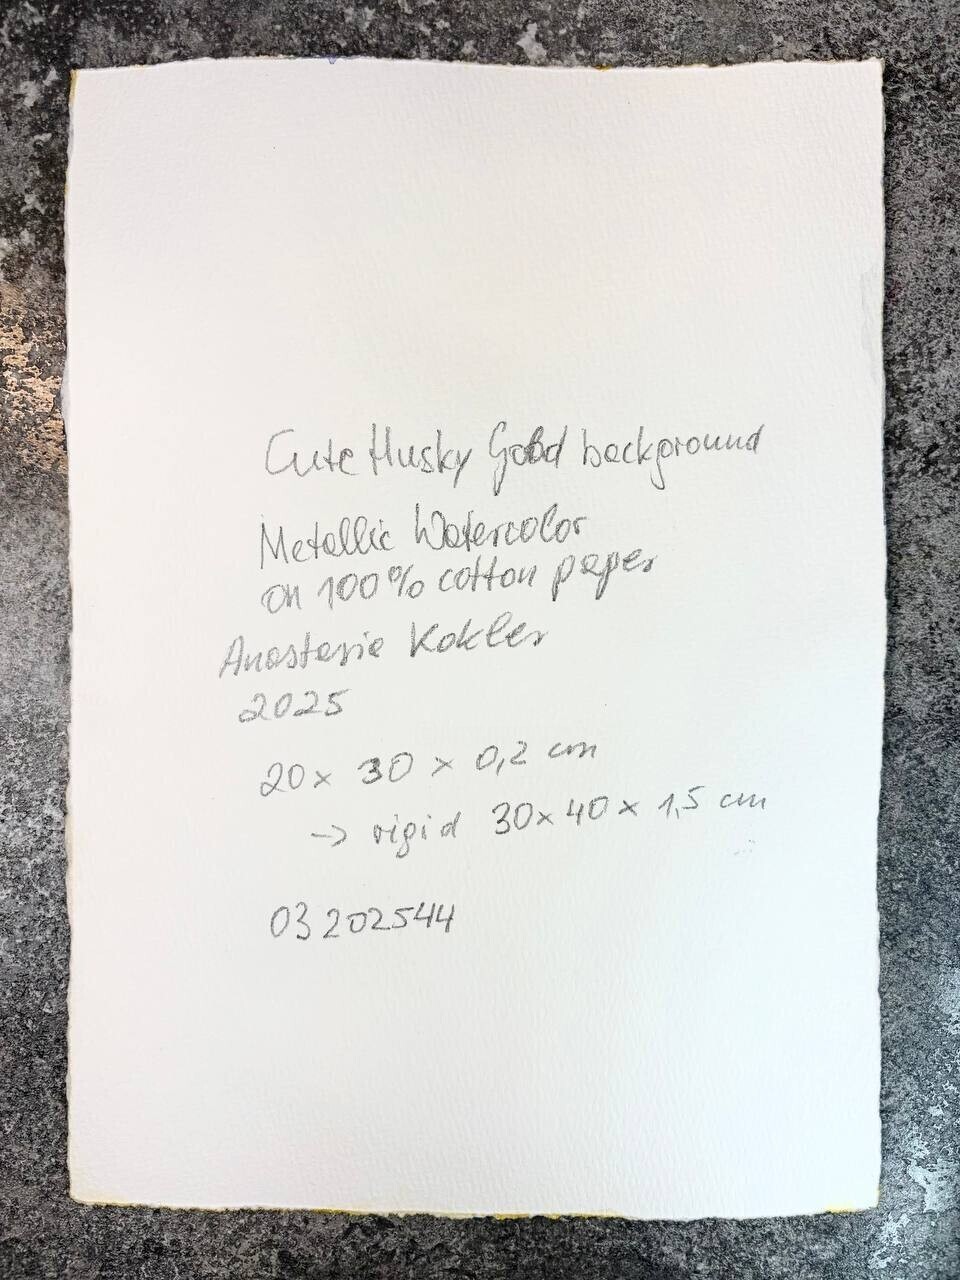 Cute Husky Gold background
Metallic Watercolor
on 100% cotton paper
Anastasia Kokler
2025
20 x 30 x 0,2 cm
→ rigid 30 x 40 x 1,5 cm
03202544